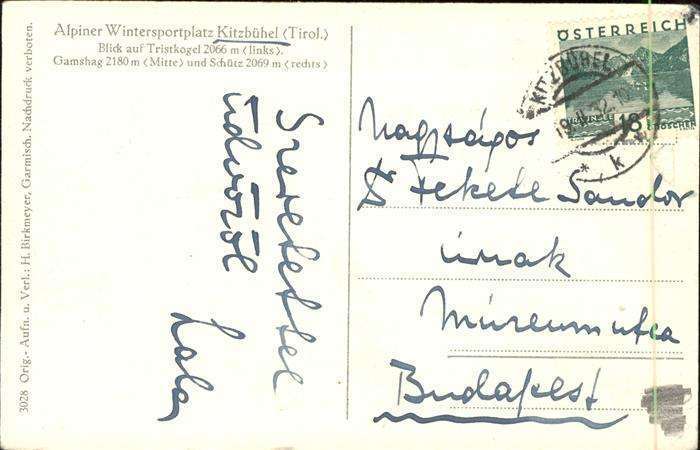 Alpiner Wintersportplatz Kitzbühel (Tirol.)
Blick auf Tristkogel 2066 m (links).
Gamshag 2180 m (Mitte) und Schütz 2069 m (rechts)
3028 Orig.- Aufn. u. Verl.: H. Birkmeyer, Garmisch. Nachdruck verboten.
Szeretettel
üdvözöl
ÖSTERREICH
18 GROSCHEN
KITZBÜHEL
* k
Nagyságos
Fekete Sandor
úrnak
Múzeum utca
Budapest